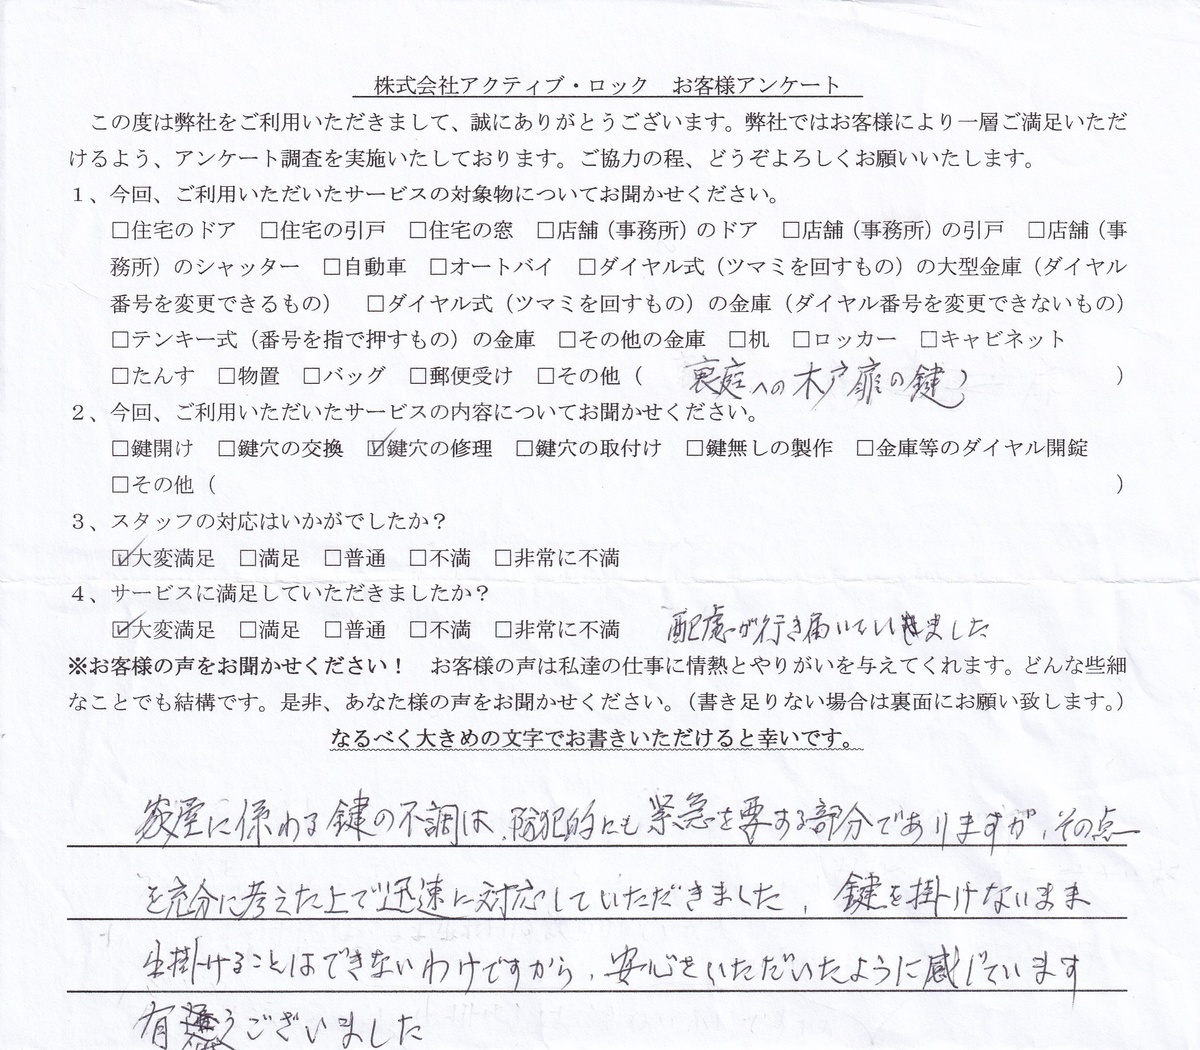 株式会社アクティブ・ロック　お客様アンケート
この度は弊社をご利用いただきまして、誠にありがとうございます。弊社ではお客様により一層ご満足いただ
けるよう、アンケート調査を実施いたしております。ご協力の程、どうぞよろしくお願いいたします。
1、今回、ご利用いただいたサービスの対象物についてお聞かせください。
□住宅のドア　□住宅の引戸　□住宅の窓　□店舗（事務所）のドア　□店舗（事務所）の引戸　□店舗（事
務所）のシャッター　□自動車　□オートバイ　□ダイヤル式（ツマミを回すもの）の大型金庫（ダイヤル
番号を変更できるもの）　□ダイヤル式（ツマミを回すもの）の金庫（ダイヤル番号を変更できないもの）
□テンキー式（番号を指で押すもの）の金庫　□その他の金庫　□机　□ロッカー　□キャビネット
□たんす　□物置　□バッグ　□郵便受け　□その他（　裏庭への木戸扉の鍵　）
2、今回、ご利用いただいたサービスの内容についてお聞かせください。
□鍵開け　□鍵穴の交換　☑鍵穴の修理　□鍵穴の取付け　□鍵無しの製作　□金庫等のダイヤル開錠
□その他（　）
3、スタッフの対応はいかがでしたか？
☑大変満足　□満足　□普通　□不満　□非常に不満
4、サービスに満足していただきましたか？
☑大変満足　□満足　□普通　□不満　□非常に不満　配慮が行き届いていきました
※お客様の声をお聞かせください！　お客様の声は私達の仕事に情熱とやりがいを与えてくれます。どんな些細
なことでも結構です。是非、あなた様の声をお聞かせください。（書き足りない場合は裏面にお願い致します。）
なるべく大きめの文字でお書きいただけると幸いです。
家屋に係わる鍵の不調は、防犯的にも緊急を要する部分でありますが、その点
を充分に考えた上で迅速に対応していただきました。鍵を掛けないまま
出掛けることはできないわけですから、安心をいただいたように感じています
有難うございました